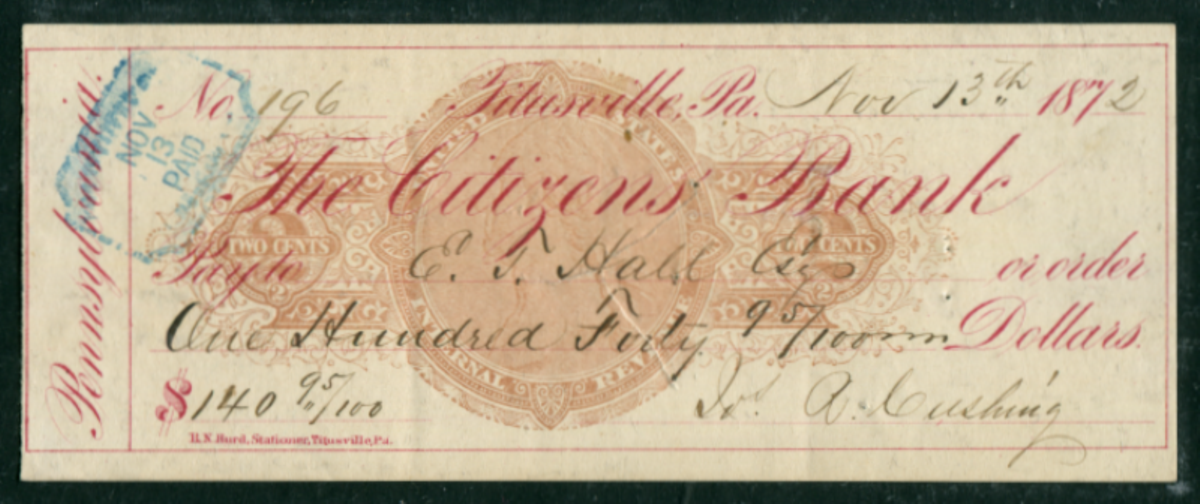 Pennsylvania
NOV
13
PAID
No. 196 Titusville, Pa. Nov 13th 1872
The Citizens Bank
UNITED STATES
TWO CENTS
TWO CENTS
Pay to E. T. Hall Esq or order
One Hundred Forty 95/100 Dollars.
INTERNAL REVENUE
$140 95/100
Jos. A. Cushing
B.N. Burd, Stationer, Titusville, Pa.